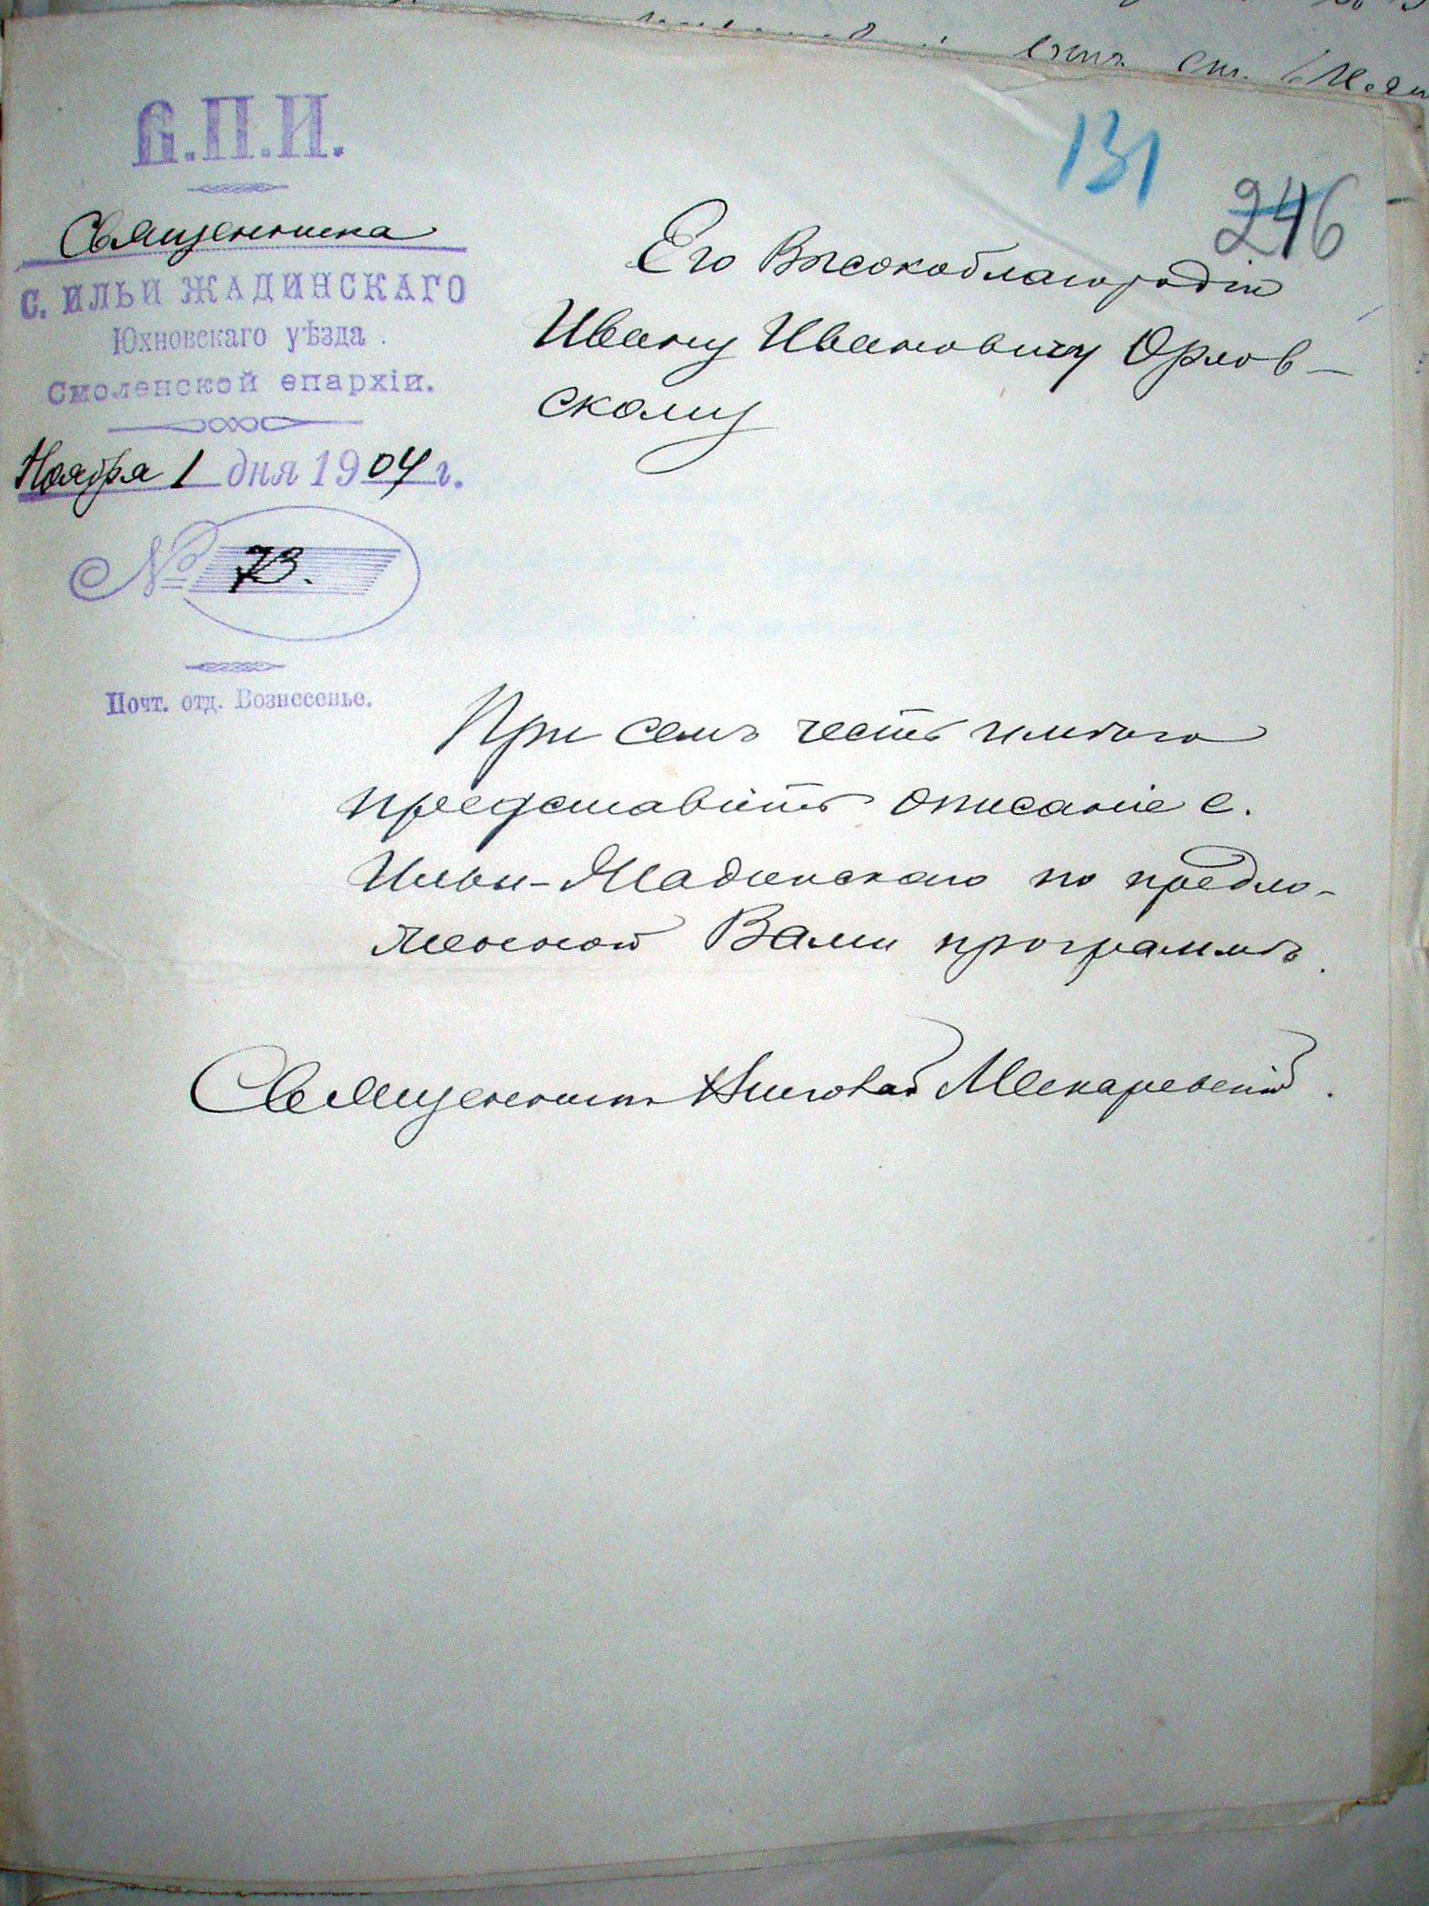 В.П.И.
Священника
С. ИЛЬИ ЖАДИНСКАГО
Юхновскаго уѣзда
Смоленской епархіи.
Ноября 1 дня 1904 г.
№ 73.
Почт. отд. Вознесенье.
131
246
Его Высокоблагородію
Ивану Ивановичу Орлов-
скому
При семъ честь имѣю
представить описаніе с.
Ильи-Жадинскаго по предло-
женной Вами программѣ.
Священникъ Николай